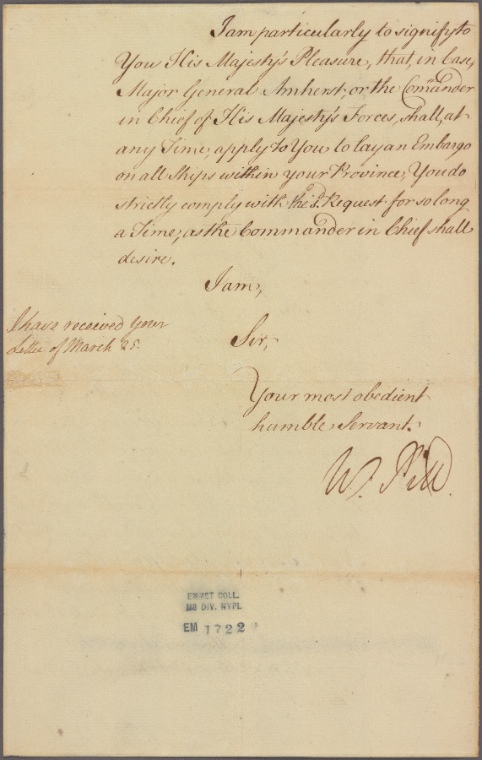 I am particularly to signify to
You His Majesty's Pleasure, that, in Case,
Major General Amherst, or the Com̃ander
in Chief of His Majesty's Forces, shall, at
any Time, apply to You to lay an Embargo
on all Ships within your Province, You do
strictly comply with the sd. Request for so long
a Time, as the Commander in Chief shall
desire.
I am,
I have received your
Letter of March 25.
Sir,
Your most obedient
humble Servant.
W. Pitt.
EMMET COLL.
MS DIV. NYPL
EM 1722